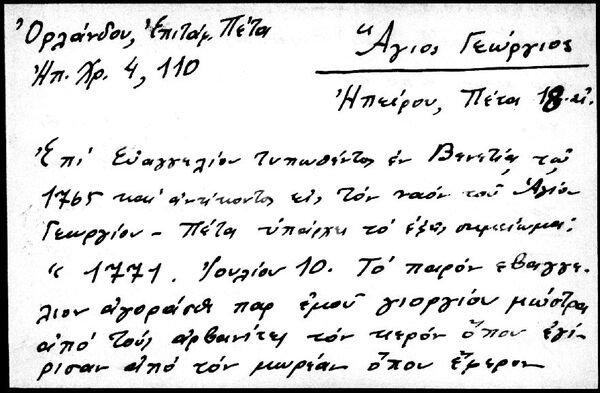 Ὀρλάνδου, Ἐπιτάφ. Πέτα
Ἠπ. Χρ. 4, 110
Ἅγιος Γεώργιος
Ἠπείρου, Πέτα 18 αἰ.
Ἐπί Εὐαγγελίου τυπωθέντος ἐν Βενετίᾳ τῷ
1765 καί ἀνήκοντος εἰς τόν ναόν τοῦ Ἁγίου
Γεωργίου – Πέτα ὑπάρχει τό ἑξῆς σημείωμα:
"1771. Ἰουλίου 10. Τό παρόν εβαγγε-
λιον ἀγοράσθ παρ ἐμοῦ γιοργίου μώστρα
ἀπό τούς ἀρβανίτες τόν κερόν ὅπου ἐγί-
ρισαν ἀπό τόν μωρέαν ὅπου ἔφερον